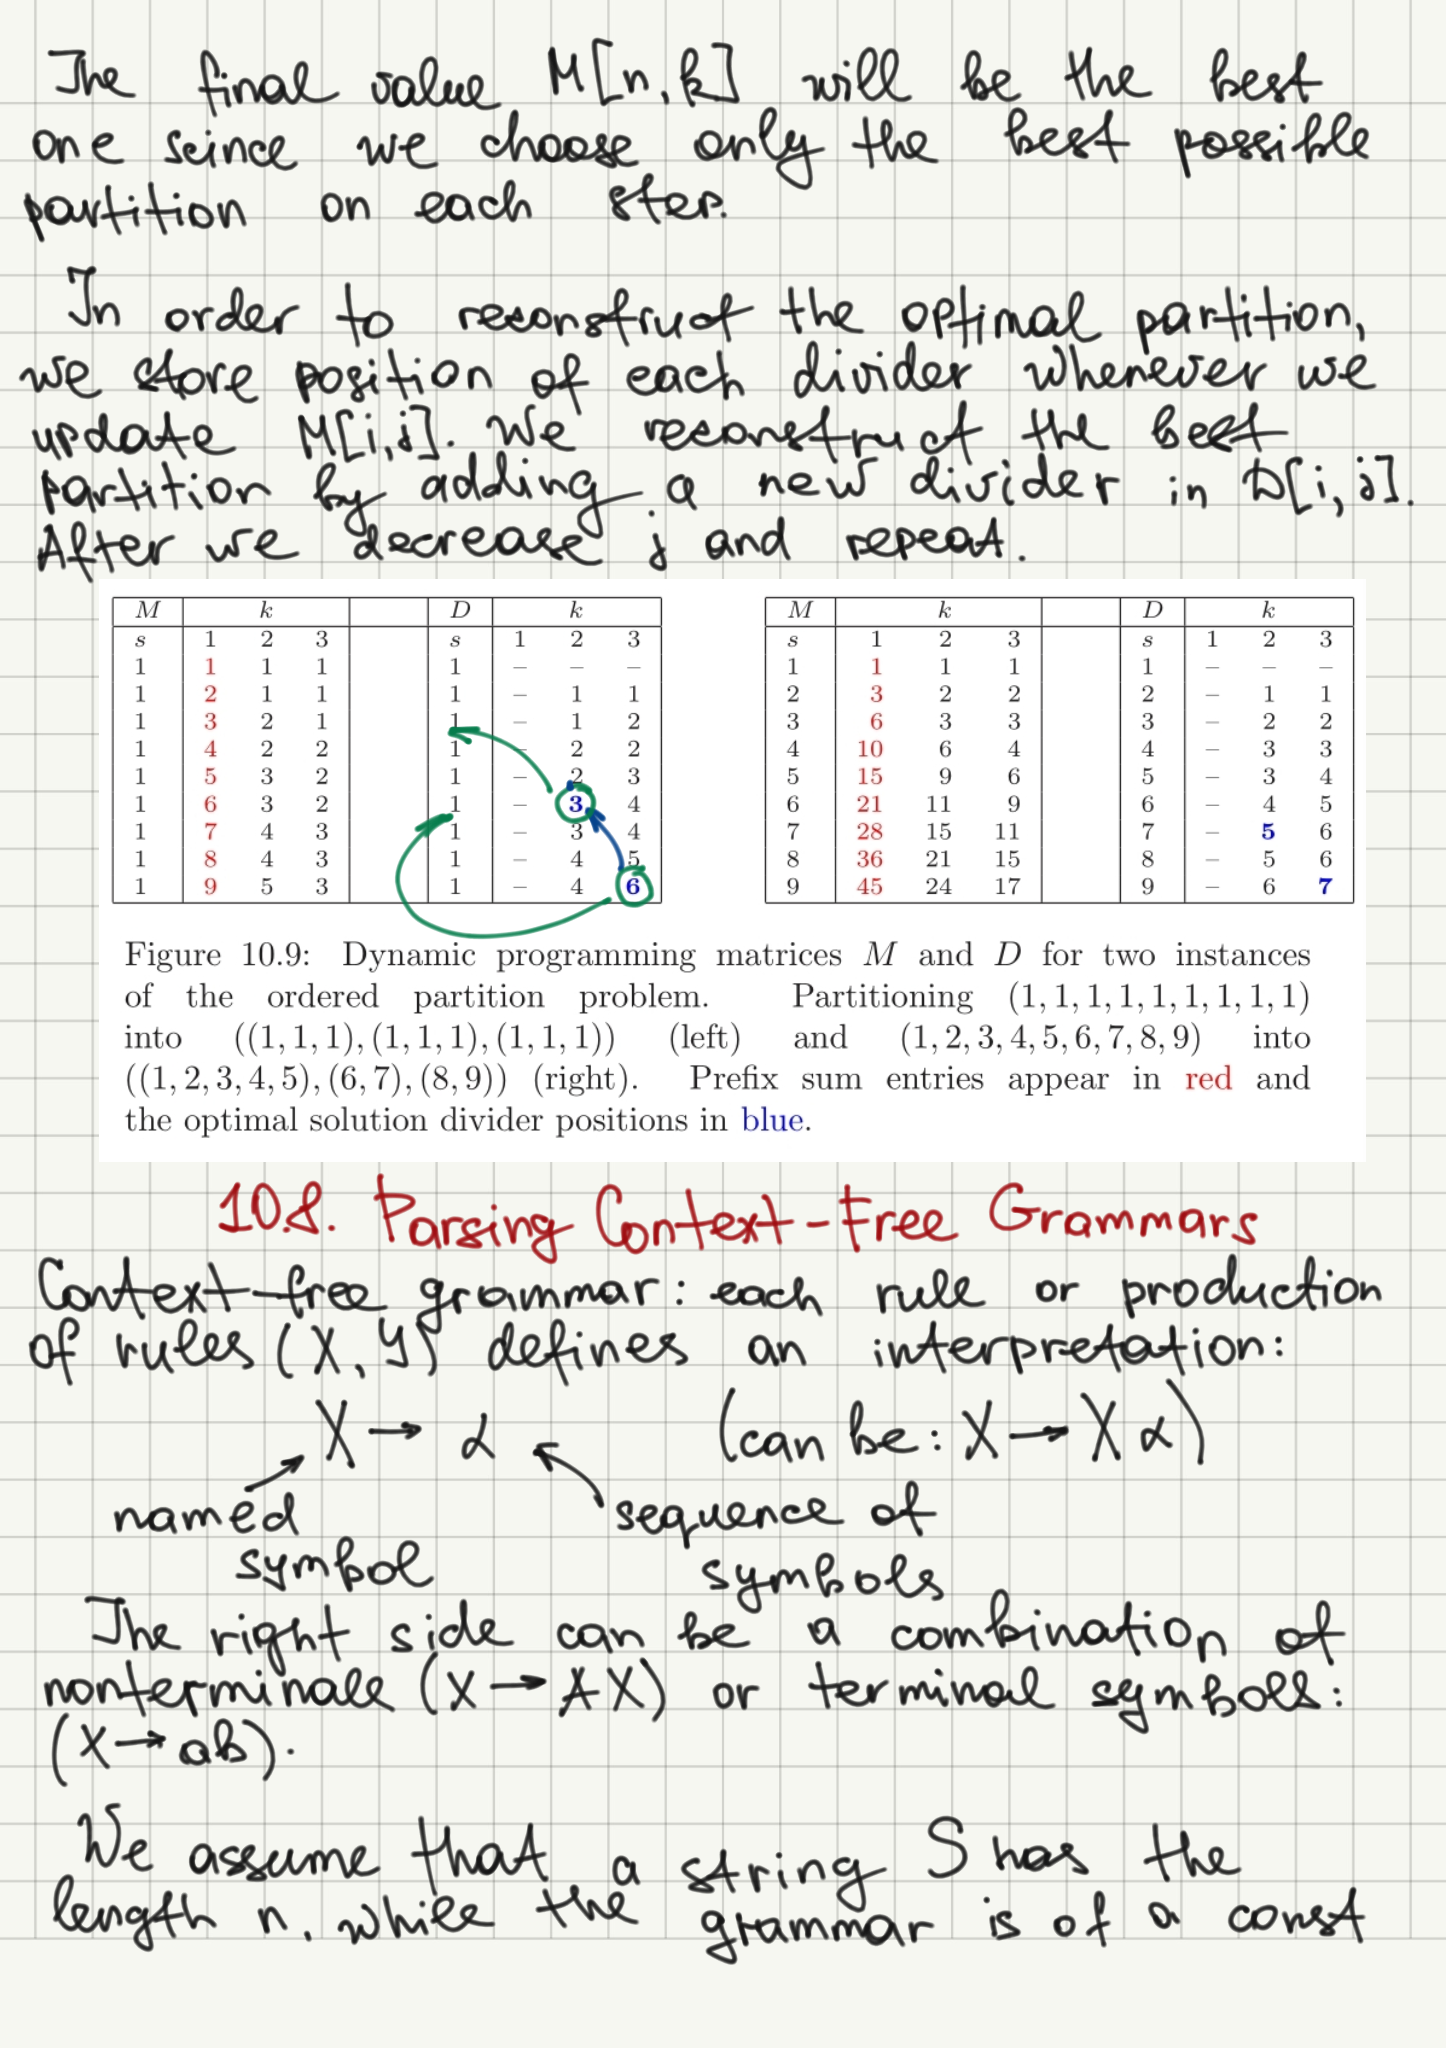 The final value M[n, k] will be the best
one seince we choose only the best possible
partition on each step.
In order to reconstruct the optimal partition,
we store position of each divider whenever we
update M[i,j]. We reconstruct the best
partition by adding a new divider in D[i, j].
After we decrease j and repeat.
M k D k
s 1 2 3 s 1 2 3
1 1 1 1 1 – – –
1 2 1 1 1 – 1 1
1 3 2 1 1 – 1 2
1 4 2 2 1 – 2 2
1 5 3 2 1 – 2 3
1 6 3 2 1 – 3 4
1 7 4 3 1 – 3 4
1 8 4 3 1 – 4 5
1 9 5 3 1 – 4 6
M k D k
s 1 2 3 s 1 2 3
1 1 1 1 1 – – –
2 3 2 2 2 – 1 1
3 6 3 3 3 – 2 2
4 10 6 4 4 – 3 3
5 15 9 6 5 – 3 4
6 21 11 9 6 – 4 5
7 28 15 11 7 – 5 6
8 36 21 15 8 – 5 6
9 45 24 17 9 – 6 7
Figure 10.9: Dynamic programming matrices M and D for two instances
of the ordered partition problem. Partitioning (1, 1, 1, 1, 1, 1, 1, 1, 1)
into ((1, 1, 1), (1, 1, 1), (1, 1, 1)) (left) and (1, 2, 3, 4, 5, 6, 7, 8, 9) into
((1, 2, 3, 4, 5), (6, 7), (8, 9)) (right). Prefix sum entries appear in red and
the optimal solution divider positions in blue.
10.8. Parsing Context-Free Grammars
Context-free grammar: each rule or production
of rules (X, Y) defines an interpretation:
X → α (can be: X → X α)
named sequence of
symbol symbols
The right side can be a combination of
nonterminals (X → AX) or terminal symbols:
(X → ab).
We assume that a string S has the
length n, while the grammar is of a const